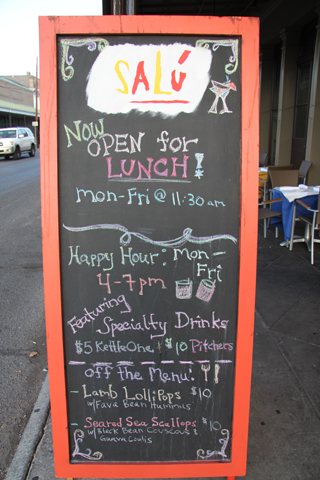 SALÚ
Now
OPEN for
LUNCH!
mon-Fri @ 11:30 am
Happy Hour: Mon-
Fri
4-7pm
Featuring
Specialty Drinks
$5 Kettle One & $10 Pitchers
Off the Menu:
- Lamb Lollipops $10
w/ Fava Bean Hummus
- Seared Sea Scallops $10
w/ Black Bean Couscous &
Guava Coulis